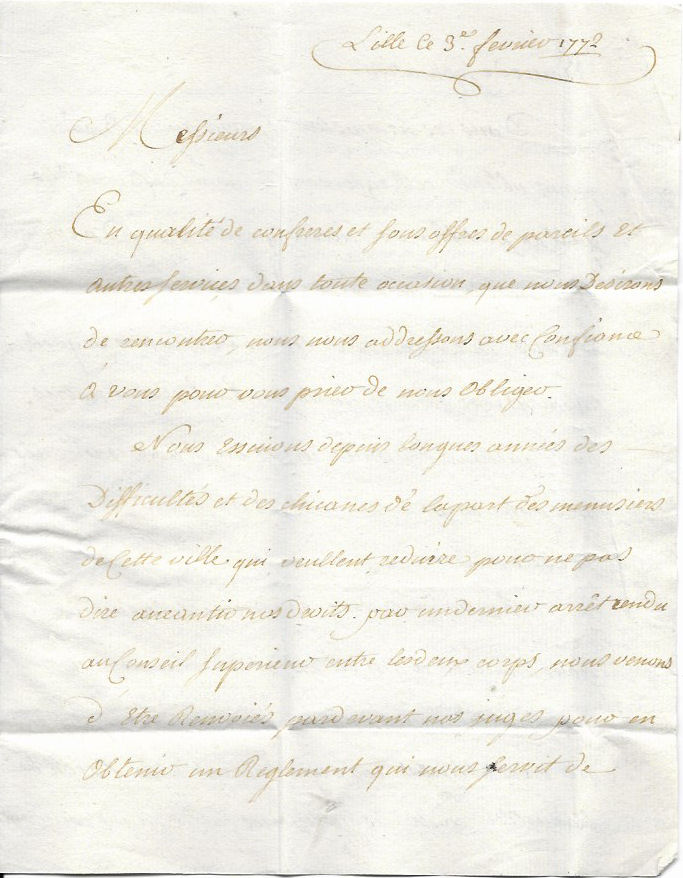 Lille le 3.e fevrier 1772
Messieurs
En qualité de confreres et sous offres de pareils et
autres services dans toute occasion, que nous Desirons
de rencontrer, nous nous addressons avec Confiance
à vous pour vous prier de nous Obliger.
Nous Essuions depuis longues années des
Difficultés et des chicanes dé la part des menusiers
de Cette ville qui veullent reduire pour ne pas
dire aneantir nos droits. par un dernier arrêt rendu
au Conseil Superieur entre les deux corps, nous venons
d'Etre Renvoiés pardevant nos juges pour en
Obtenir un Reglement qui nous servit de